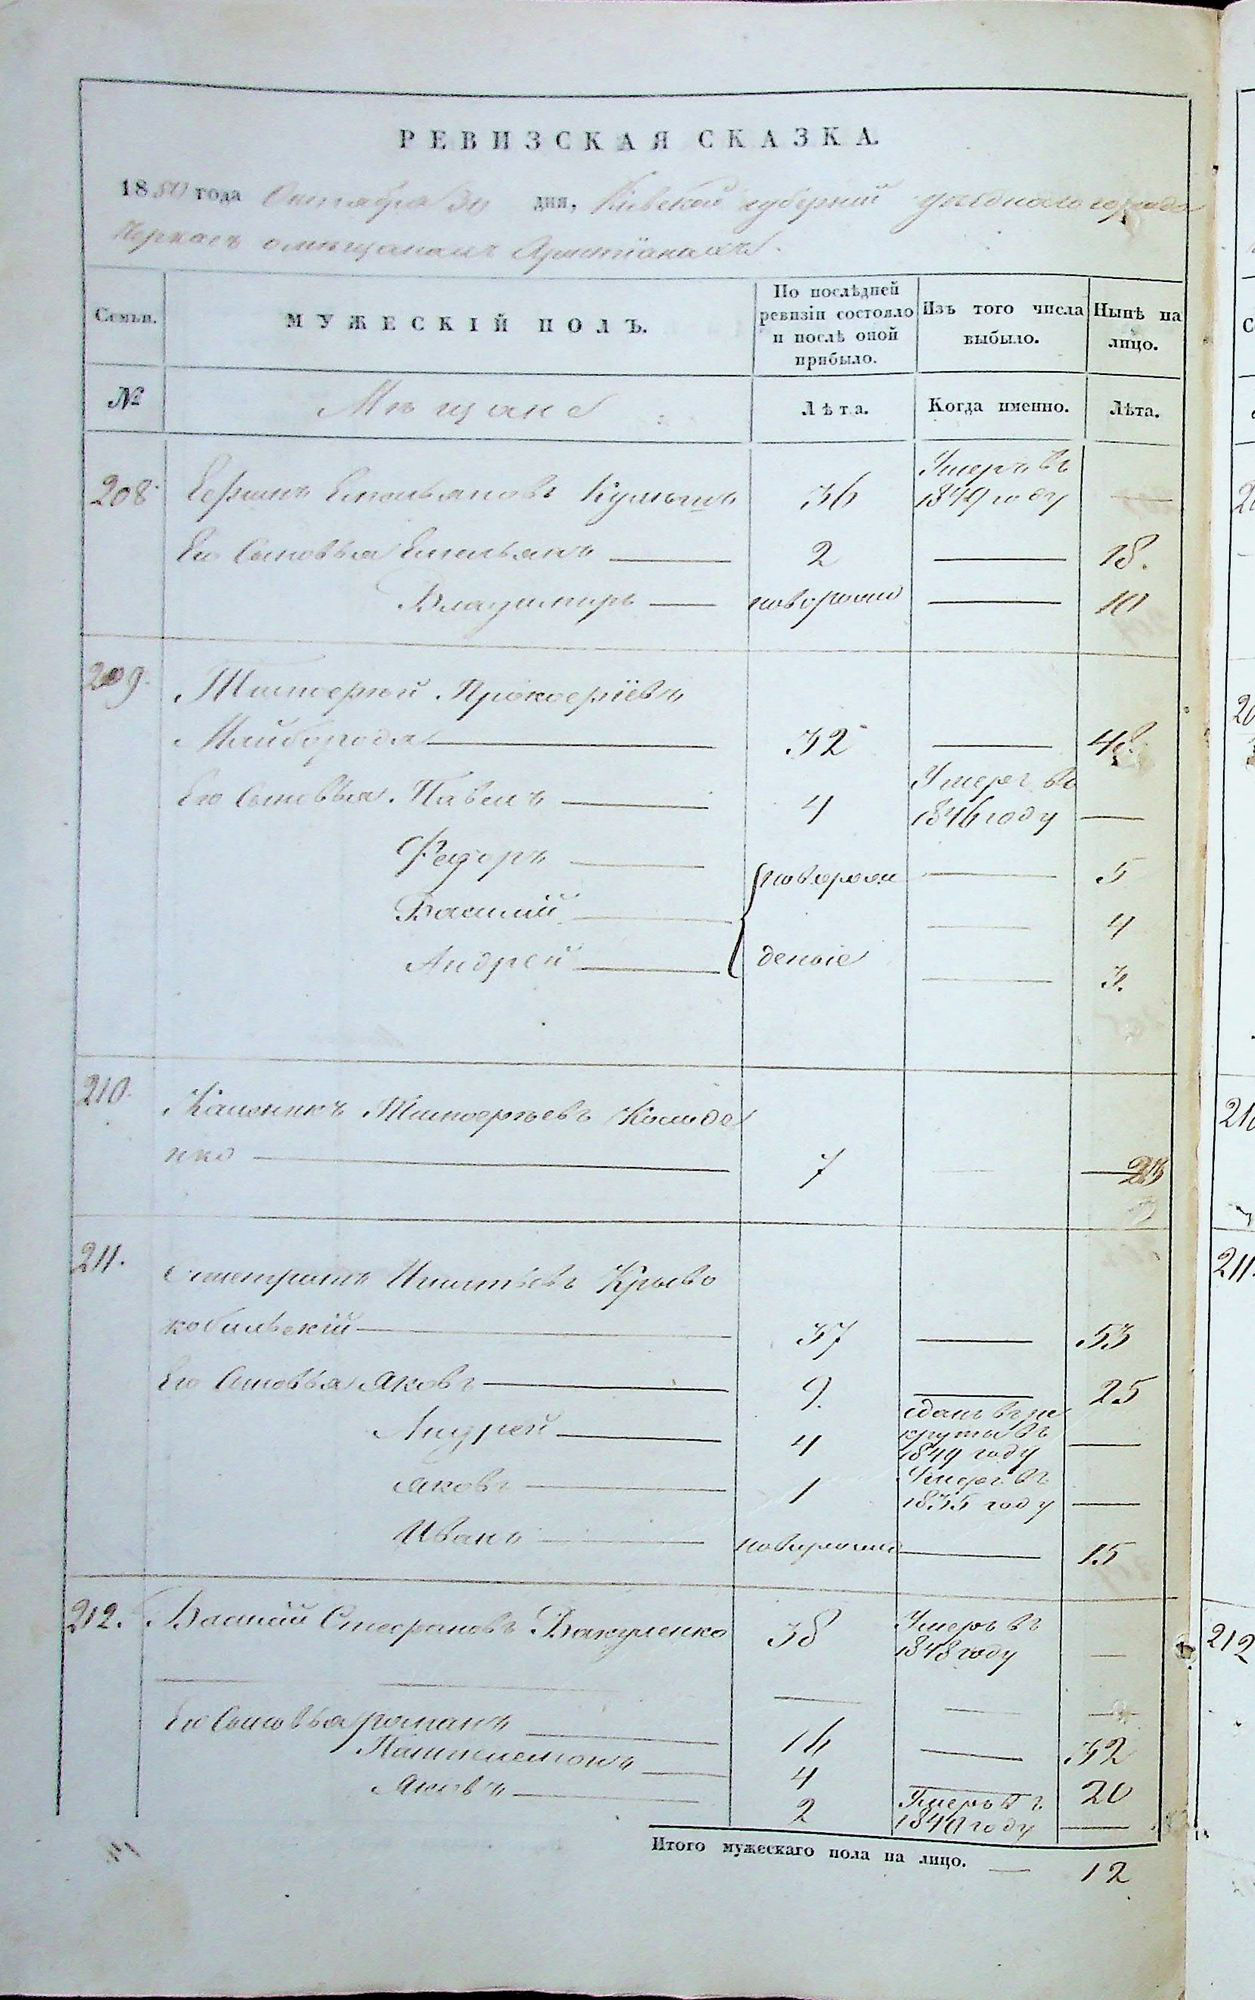 РЕВИЗСКАЯ СКАЗКА.
1850 года Октября 30 дня, Кіевской губерніи уѣзднаго города
Черкасъ о мѣщанахъ Христіанахъ.
Семьи.
МУЖЕСКІЙ ПОЛЪ.
По послѣдней ревизіи состояло и послѣ оной прибыло.
Изъ того числа выбыло.
Нынѣ на лицо.
№ Мѣщане Лѣта. Когда именно. Лѣта.
208. Ефимъ Емельяновъ 36 Умеръ въ 1849 году —
Его Сыновья Емельянъ — 2 — 18.
Владимиръ — новорожд — 10
209. Тимофей Прокофіевъ
Майборода — 32 — 48.
Его Сыновья. Павелъ — 4 Умеръ въ 1846 году —
Федоръ — новорож — 5
Василій — — 4
Андрей — деные — 3.
210. Калиникъ Тимофѣевъ Коломе
нко — 7 — 23
211. Евстратъ Игнатьевъ Криво
кобыльскій — 37 — 53
Его Сыновья Яковъ — 9. — 25
Андрей — 4 сданъ въ рекруты въ 1849 году —
Яковъ — 1 Умеръ въ 1835 году —
Иванъ — новорожд — 15
212. Василій Стефановъ Вакуленко 38 Умеръ въ 1848 году —
Его Сыновья Романъ — 16 — 32
Пантилемонъ — 4 — 20
Яковъ — 2 Умеръ въ 1840 году —
Итого мужескаго пола на лицо. — 12